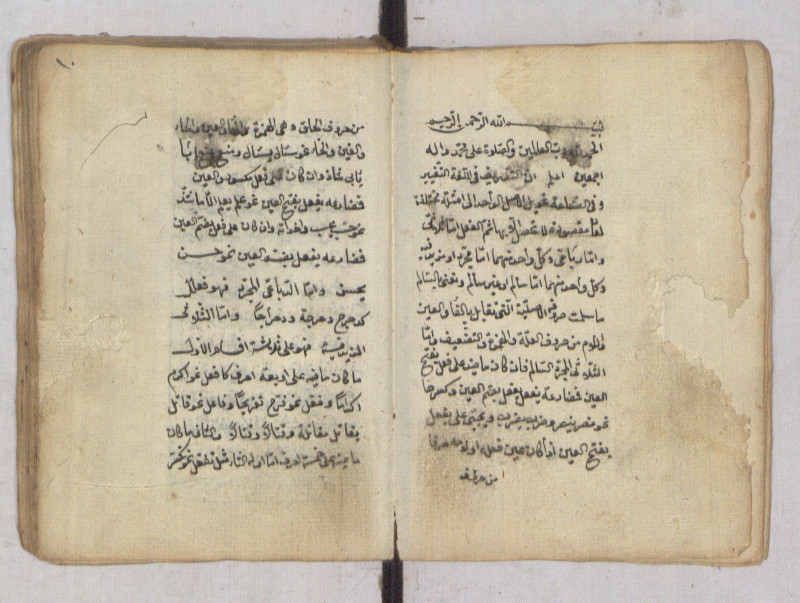 بسم الله الرحمن الرحيم
الحمد لله رب العالمين والصلوة على محمد واله
اجمعين اعلم ان التصريف في اللغة التغيير
وفي الصناعة تحويل الاصل الواحد الى امثلة مختلفة
لمعان مقصودة لا تحصل الا بها ثم الفعل اما ثلاثي
واما رباعي وكل واحد منهما اما مجرد او مزيد فيه
وكل واحد منهما اما سالم او غير سالم ونعني بالسالم
ما سلمت حروفه الاصلية التي تقابل بالفاء والعين
واللام من حروف العلة والهمزة والتضعيف واما
الثلاثي المجرد السالم فان كان ماضيه على فعل بفتح
العين فمضارعه يفعل يفعل بضم العين وكسرها
نحو نصر ينصر وضرب يضرب ويجئ على يفعل
بفتح العين اذا كان عين فعله او لامه حرفا
من حروف
١٠
من حروف الحلق وهي الهمزة والهاء والعين والحاء
والغين والخاء نحو سأل يسأل ومنع يمنع وابى
يأبى شاذ وان كان على فعل مكسور العين
فمضارعه يفعل بفتح العين نحو علم يعلم الا ما شذ
نحو حسب يحسب واخواته وان كان على فعل بضم العين
فمضارعه يفعل بضم العين نحو حسن
يحسن واما الرباعي المجرد فهو فعلل
كدحرج دحرجة ودحراجا واما الثلاثي
المزيد فيه فهو على ثلاثة اقسام الاول
ما كان ماضيه على اربعة احرف كافعل نحو اكرم
اكراما وفعل نحو فرح تفريحا وفاعل نحو قاتل
يقاتل مقاتلة وقتالا وقيتالا والثاني ما كان
ماضيه على خمسة احرف اما اوله التاء مثل تفعل نحو تكسر